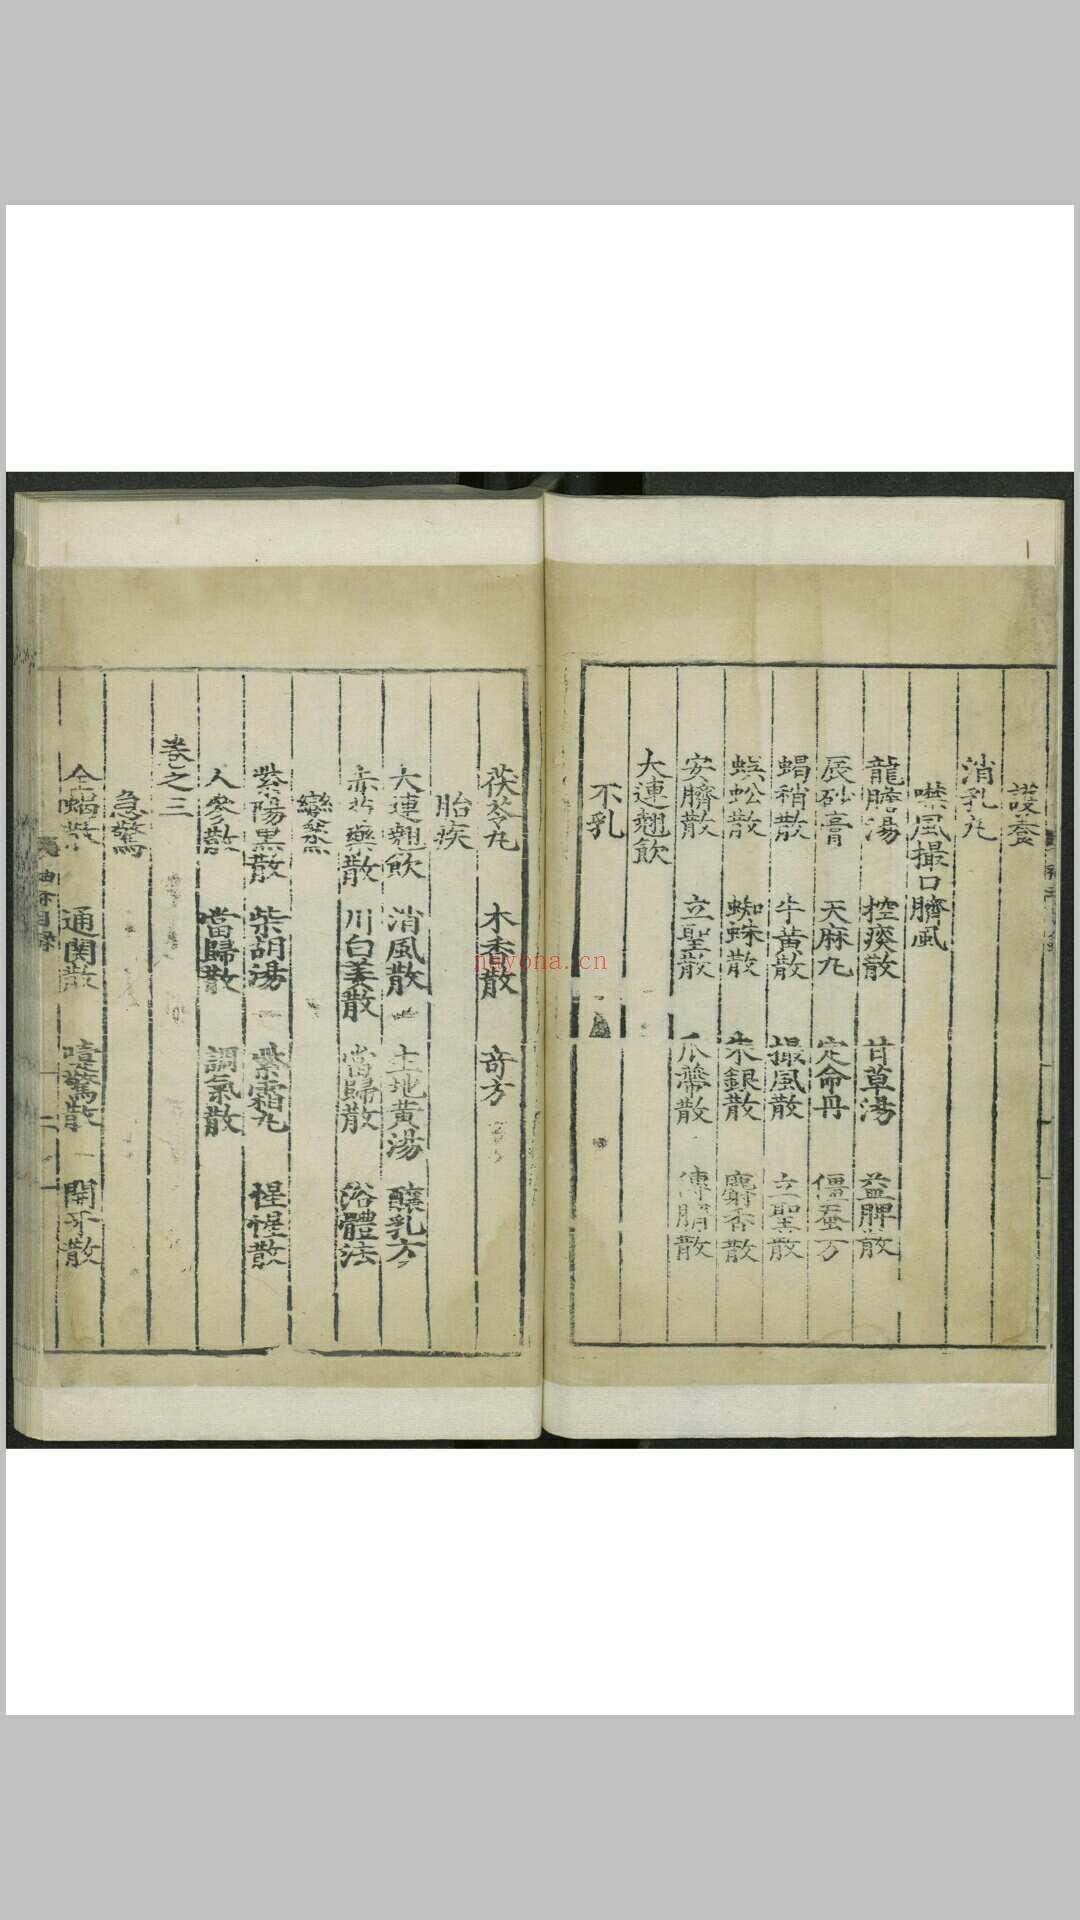 護養
消乳丸
噤風撮口臍風
龍膽湯 控痰散 甘草湯 益脾散
辰砂膏 天麻丸 定命丹 僵蚕方
蝎稍散 牛黃散 撮風散 立聖散
蜈蚣散 蜘蛛散 朱銀散 麝香散
安臍散 立聖散 瓜蒂散 傅臍散
大連翹飲
不乳
茯苓丸 木香散 奇方
胎疾
大連翹飲 消風散 生地黃湯 釀乳方
赤芍藥散 川白姜散 當歸散 浴體法
變蒸
紫陽黑散 柴胡湯 紫霜丸 惺惺散
人參散 當歸散 調氣散
卷之三
急驚
全蝎散 通関散 嚏驚散 開牙散
hayona.cn